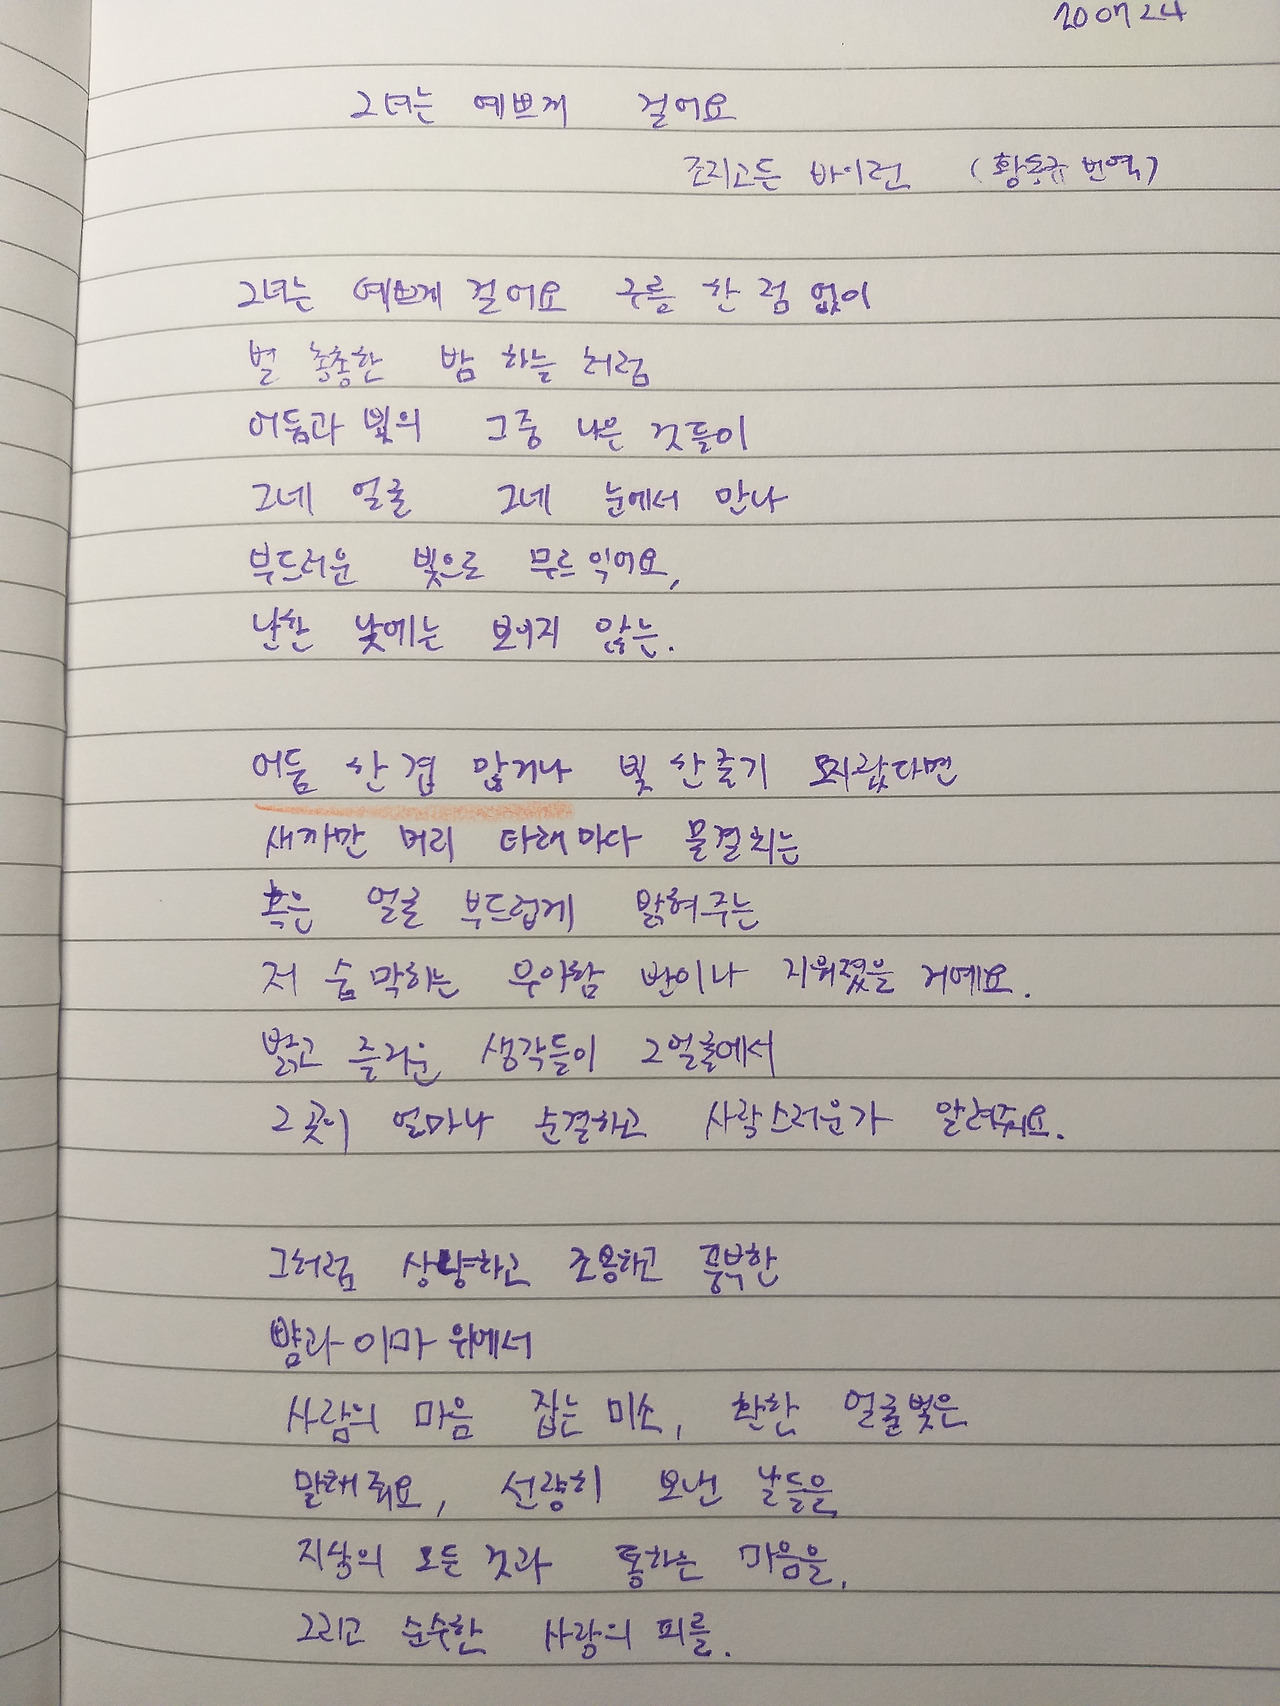 200724
그녀는 예쁘게 걸어요
조지고든 바이런 (황동규 번역)
그녀는 예쁘게 걸어요 구름 한 점 없이
별 총총한 밤 하늘 처럼
어둠과 빛의 그중 나은 것들이
그네 얼굴 그네 눈에서 만나
부드러운 빛으로 무르익어요,
난한 낮에는 보이지 않는.
어둠 한 겹 많거나 빛 한줄기 모자랐다면
새까만 머리 타래마다 물결치는
혹은 얼굴 부드럽게 밝혀주는
저 숨막히는 우아함 반이나 지워졌을 거예요.
밝고 즐거운 생각들이 그얼굴에서
그 곳이 얼마나 순결하고 사랑스러운가 알려줘요.
그처럼 상냥하고 조용하고 풍부한
뺨과 이마 위에서
사람의 마음 잡는 미소, 환한 얼굴빛은
말해줘요, 선량히 보낸 날들을,
지상의 모든 것과 통하는 마음을,
그리고 순수한 사랑의 피를.